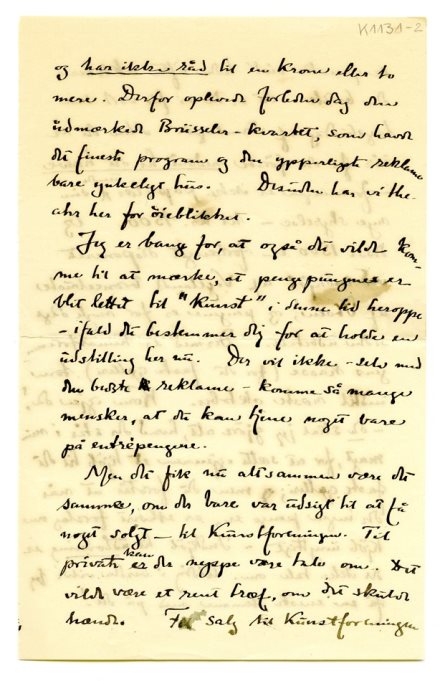 K1131-2
og har ikke råd til en krone eller to
mere. Derfor oplevede forleden dag den
üdmærkede Brüsseler-kvartet, som havde
det fineste program og den ypperligste reklame
bare ynkeligt hüs. Desüden har vi the-
atr her for öieblikket.
Jeg er bange for, at også dü vilde kom-
me til at mærke, at pengepüngene er
blit lettet til "Kunst", i denne tid heroppe
- ifald dü bestemmer dig for at holde en
üdstilling her nü. Der vil ikke - selv med
den bedste reklame - komme så mange
mensker, at dü kan tjene noget bare
på entréepengene.
Men det fik nü altsammen være det
samme, om der bare var üdsigt til at få
noget solgt - til Künstforeningen. Til
private kan er der neppe være tale om. Det
vilde være et rent træf, om det skülde
hænde. For salg til Künstforeningen